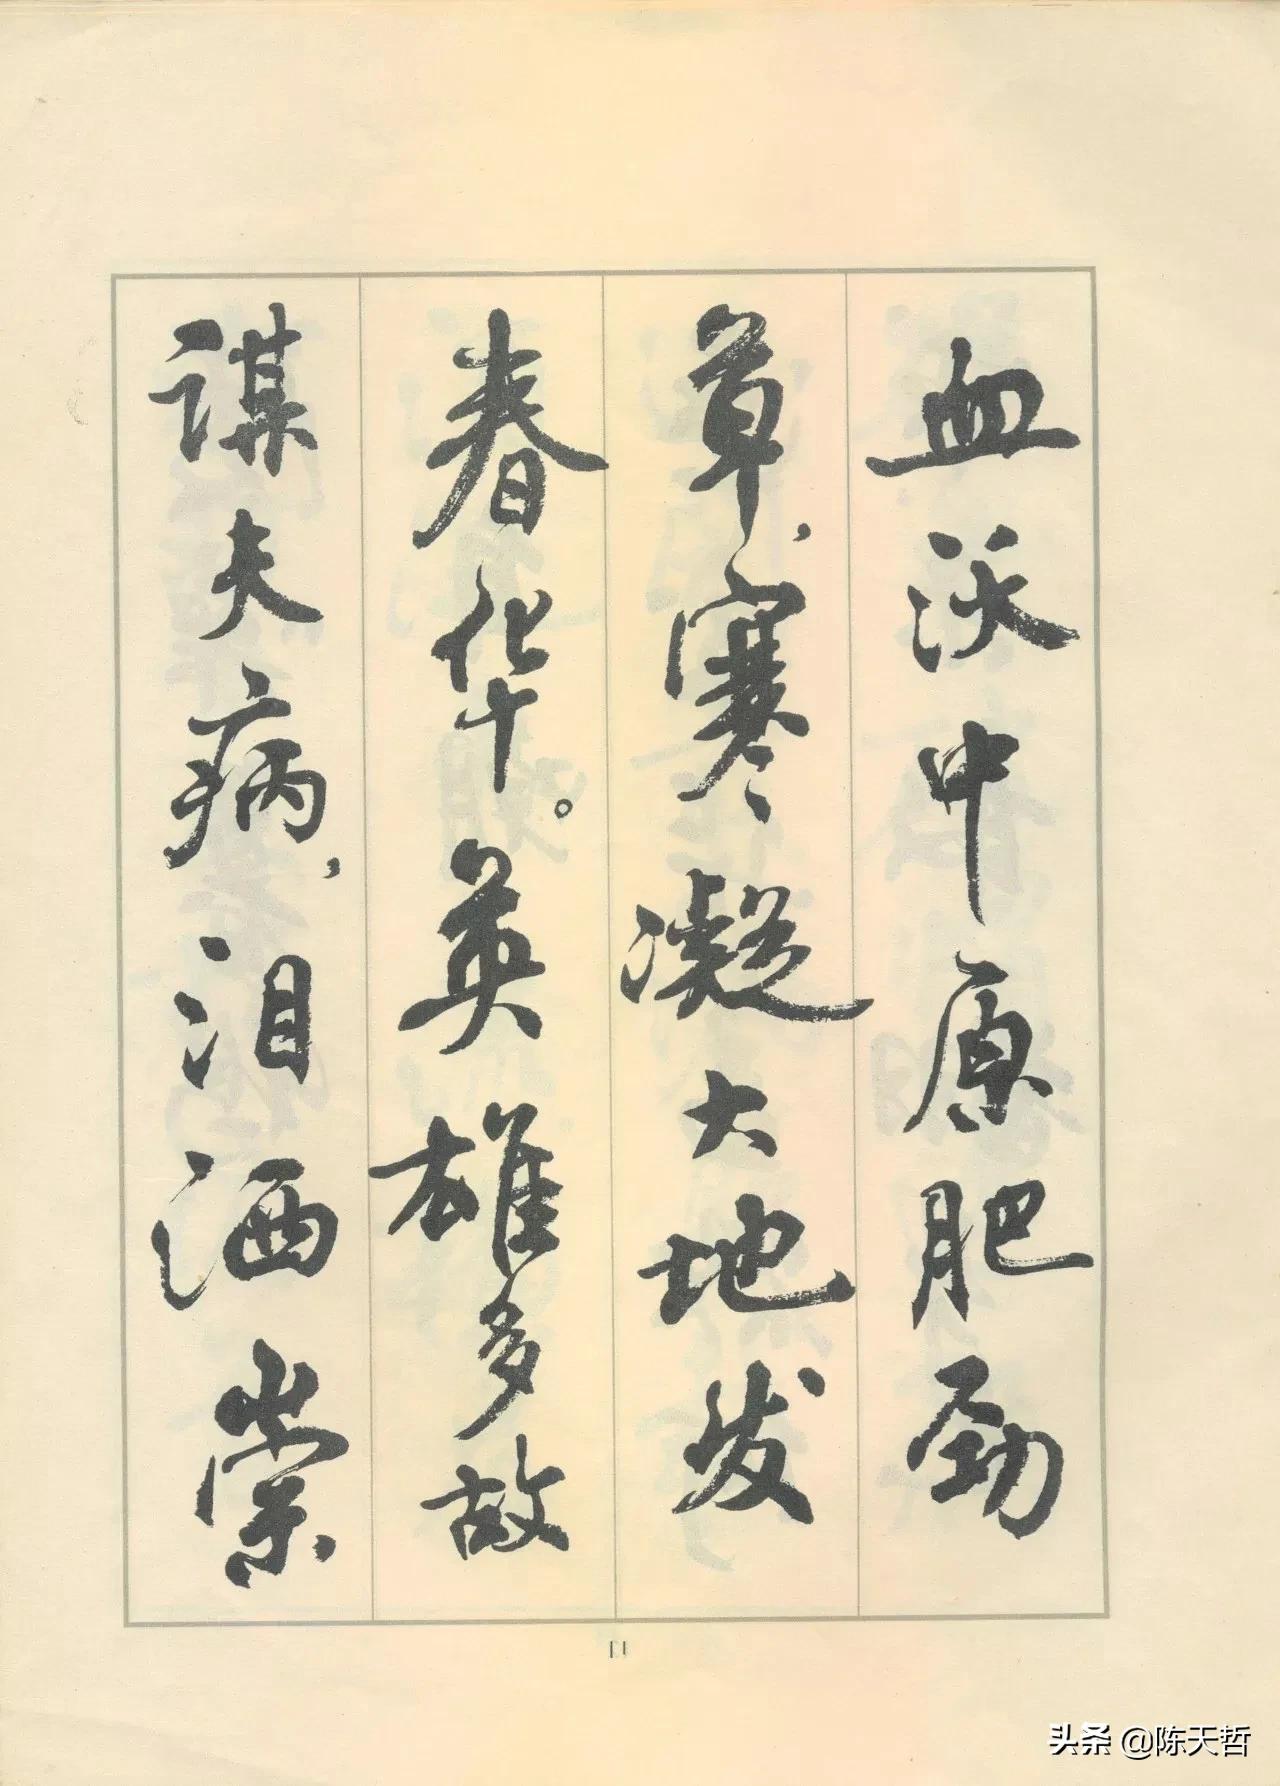 血沃中原肥劲
草，寒凝大地发
春华。英雄多故
谋夫病，泪洒崇
头条 @陈天哲